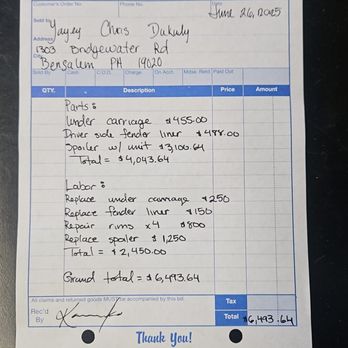 Customer's Order No.
Phone No.
Date June 26, 2025
Sold to Chris
Address 1303 Bridgewater Rd
Bensalem PA 19020
Sold By Cash C.O.D. Charge On Acct. Mdse. Retd. Paid Out
QTY. Description Price Amount
Parts:
Under carriage $455.00
Driver side fender liner $488.00
Spoiler w/ unit $3,100.64
Total = $4,043.64
Labor:
Replace under carriage $250
Replace fender liner $150
Repair rims x4 $800
Replace spoiler $1,250
Total = $2,450.00
Grand total = $6,493.64
All claims and returned goods MUST be accompanied by this bill.
Tax
Rec'd By
Total $6,493.64
Thank You!